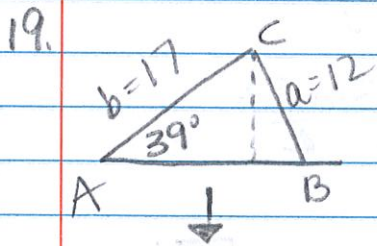 19.
C
b=17
a=12
39°
A
B